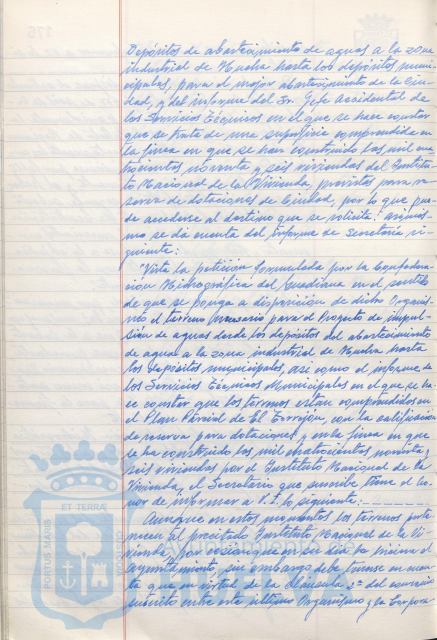 Depósitos de abastecimiento de aguas a la zona
industrial de Huelva hasta los depósitos muni-
cipales, para el mejor abastecimiento de la Ciu-
dad, y del informe del Sr. Jefe accidental de
los Servicios Técnicos en el que se hace constar
que se trata de una superficie comprendida en
la finca en que se han construido las mil cua-
trocientas noventa y seis viviendas del Institu-
to Nacional de la Vivienda, previstas para re-
serva de dotaciones de Ciudad, por lo que pue-
de accederse al destino que se solicita. asimis-
mo se da cuenta del informe de Secretaría si-
guiente:
"Vista la petición formulada por la Confedera-
ción Hidrográfica del Guadiana en el sentido
de que se ponga a disposición de dicho Organis-
mo el terreno necesario para el Proyecto de impul-
sión de aguas desde los depósitos del abastecimiento
de aguas a la zona industrial de Huelva hasta
los depósitos municipales, así como el informe de
los Servicios Técnicos Municipales en el que se ha-
ce constar que los terrenos están comprendidos en
el Plan Parcial de El Torrejón, con la calificación
de reserva para dotaciones y en la finca en que
se ha construido las mil cuatrocientas noventa y
seis viviendas por el Instituto Nacional de la
Vivienda, el Secretario que suscribe tiene el ho-
nor de informar a V.I. lo siguiente:
Aunque en estos momentos los terrenos perte-
necen al precitado Instituto Nacional de la Vi-
vienda, por cesión que en su día le hiciera el
ayuntamiento, sin embargo debe tenerse en cuen-
ta que en virtud de la Cláusula 2ª del convenio
suscrito entre este último Organismo y la Corpora-
PORTUS MARIS
ET TERRAE
CUSTODIO